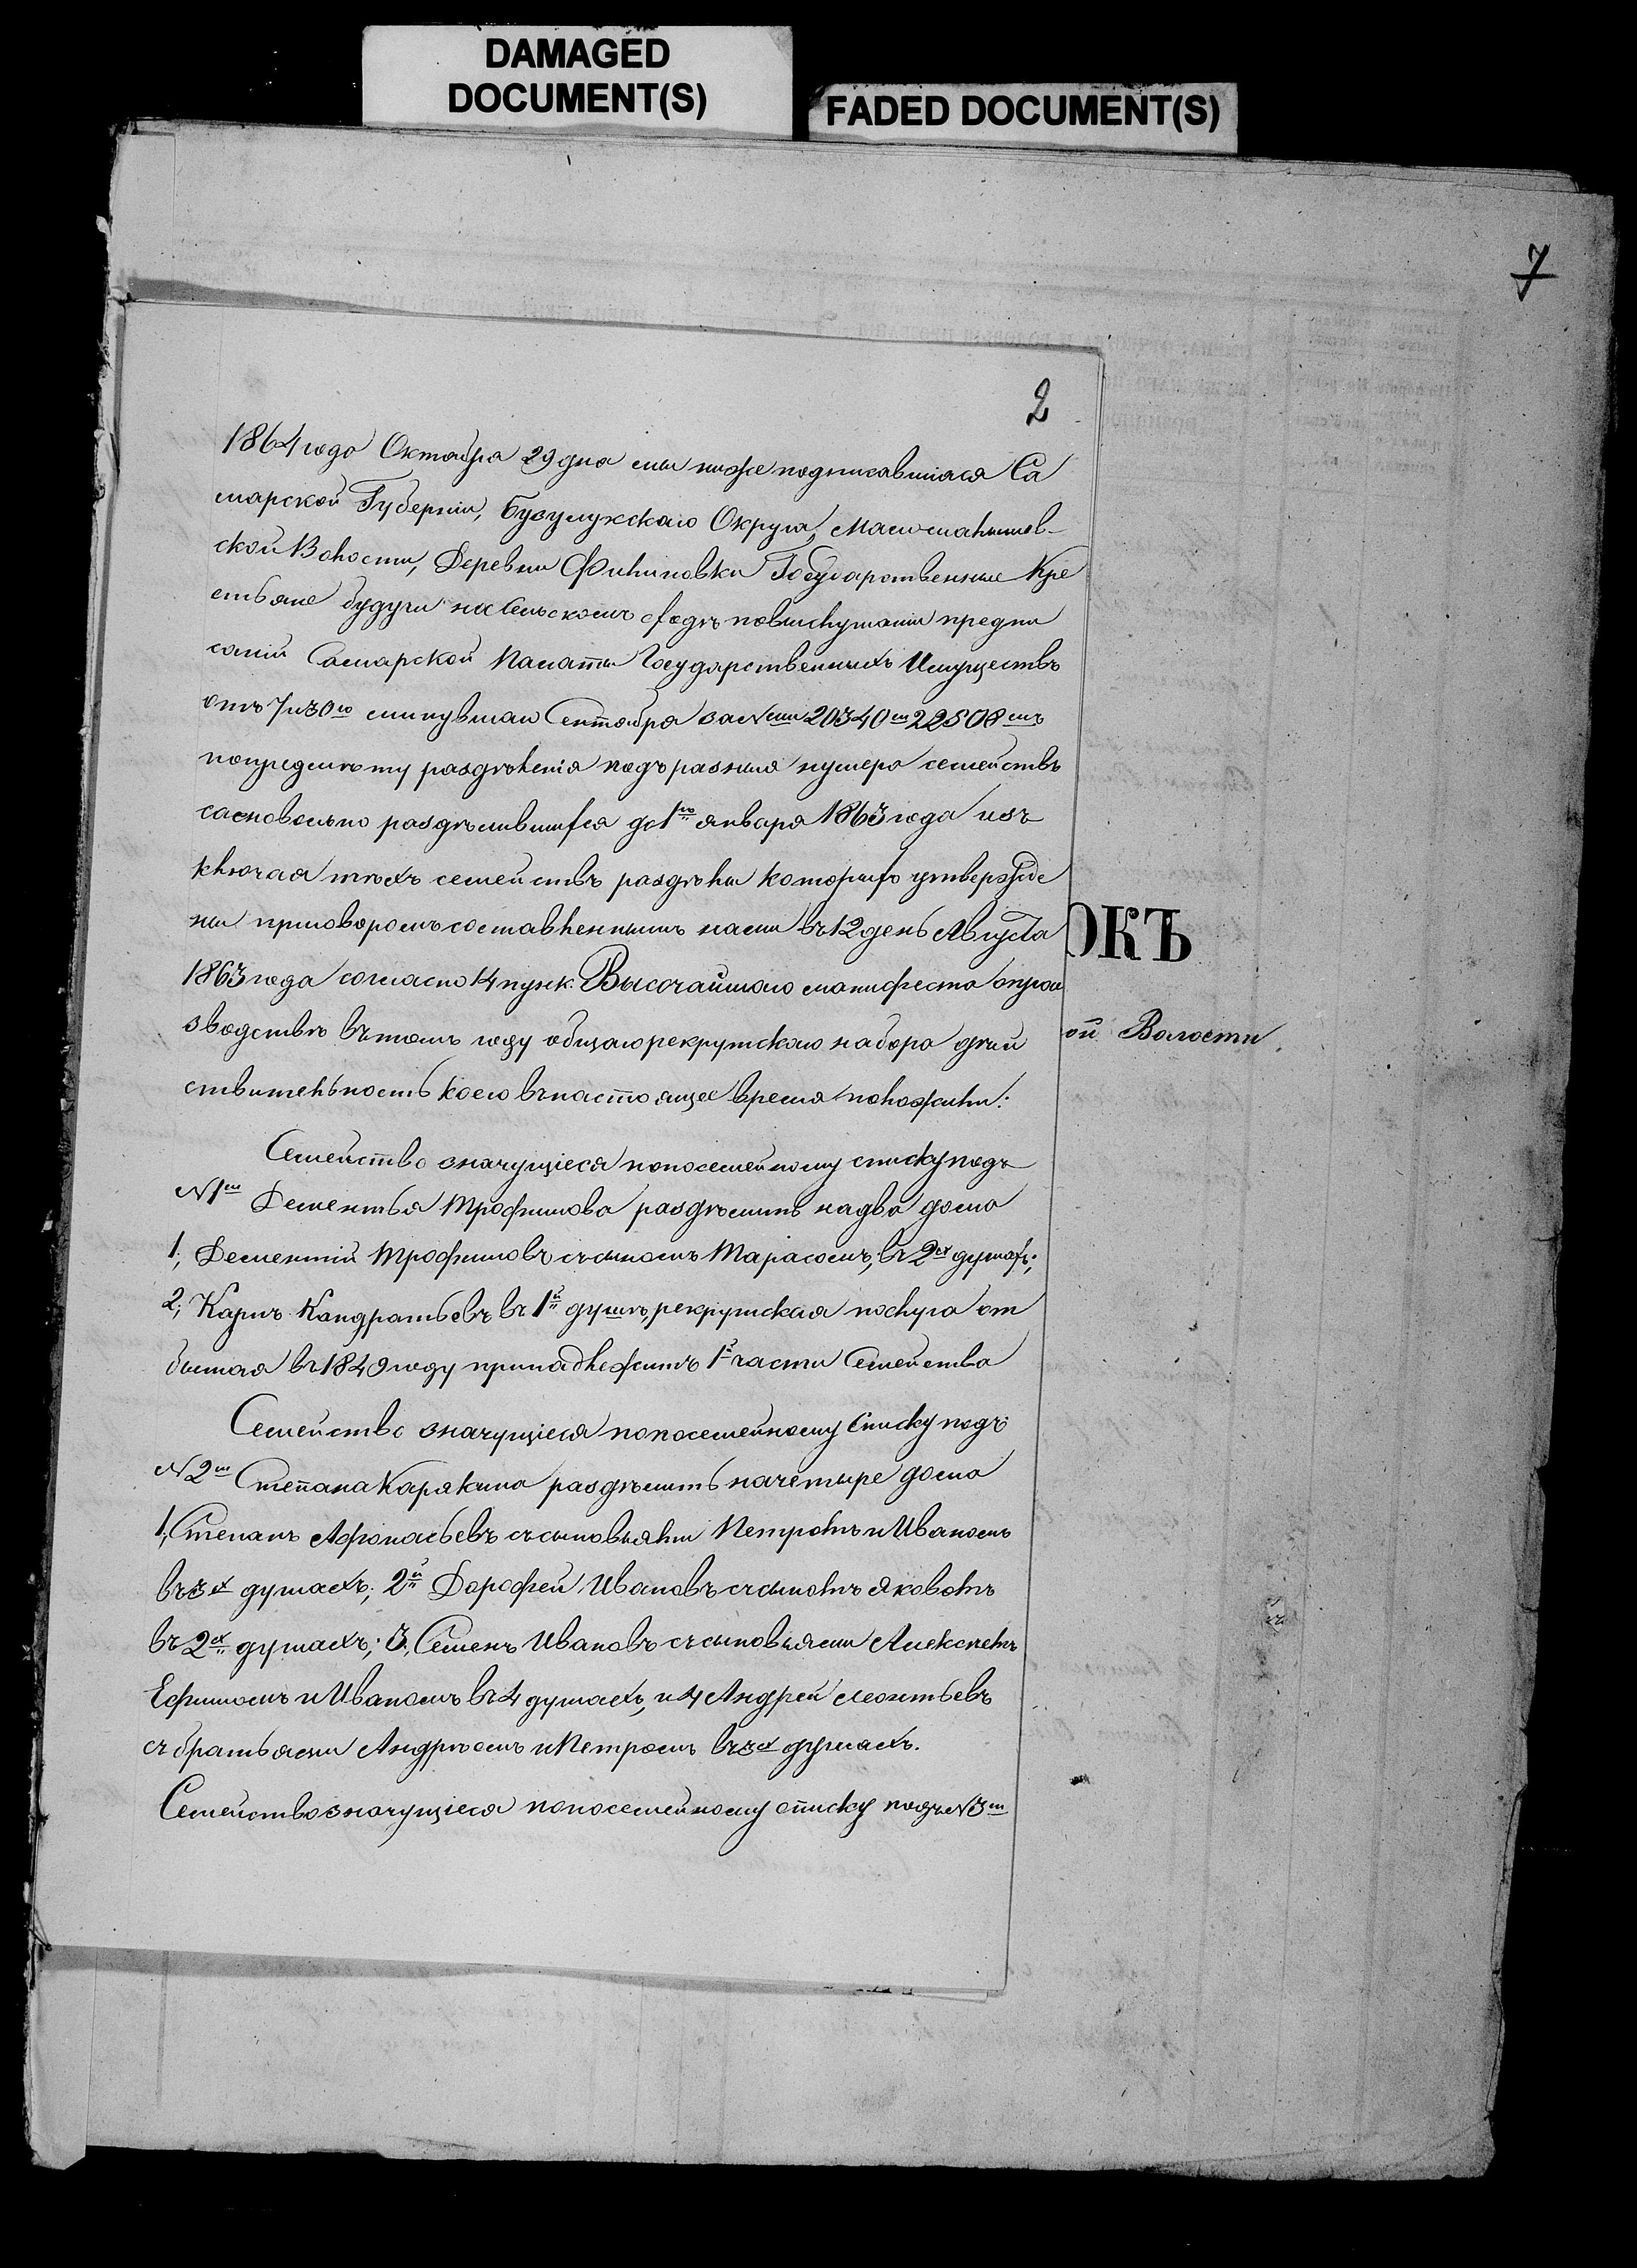 DAMAGED
DOCUMENT(S)
FADED DOCUMENT(S)
7
2
1864 года Октября 29 дня мы ниже подписавшіяся Са
марской Губерніи, Бузулукскаго Округа, Маломалышев-
ской Волости, Деревни Филиповки Государственные Кре
стьяне будучи на Сельскомъ сходѣ повыслушаніи предпи
саній Самарской Палаты Государственныхъ Имуществъ
отъ 7 и 30го минувшаго Сентября за №ми 20340м 22508мъ
попредмѣту раздѣленія подъ разныя нумера семействъ
самовольно раздѣлившихся до 1го января 1863 года изъ
ключая тѣхъ семействъ раздѣлы которыхъ утвержде
ны приговоромъ составленнымъ нами въ 12 день Августа
1863 года согласно 14 пунк. Высочайшаго манифеста опрои
зводствѣ вътомъ году общаго рекрутскаго набора дѣй
ствительность коего внастоящее время положили:
ОКЪ
ой Волости
Семейство значущіеся попосемейному списку подъ
№ 1м Дементья Трофимова раздѣлить надва дома
1, Дементій Трофимовъ съсыномъ Тарасомъ, въ 2х душахъ;
2, Карпъ Кандратьевъ въ 1й душѣ, рекрутская послуга от
бытая въ 1849 году принадлежитъ 1й части Семейства
Семейство значущіеся попосемейному Списку подъ
№ 2м Степана Карякина раздѣлить начетыре дома
1, Степанъ Афонасьевъ съсыновьями Петромъ и Иваномъ
въ 3х душахъ; 2й Дорофей Ивановъ съсыномъ Яковомъ
въ 2х душахъ; 3, Семенъ Ивановъ съсыновьями Алексѣемъ
Ефимомъ и Иваномъ въ 4 душахъ, и 4 Андрей Леонтьевъ
съ братьями Андрѣемъ и Петромъ въ 3х душахъ.
Семейство значущіеся попосемейному списку подъ № 3м